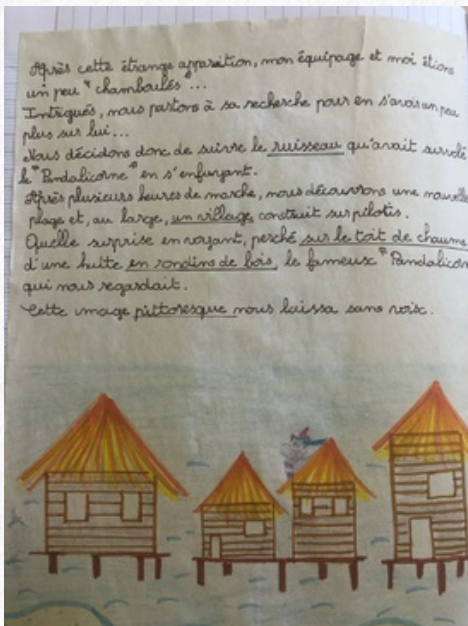 Après cette étrange apparition, mon équipage et moi étions
un peu "chamboulés"...
Intrigués, nous partons à sa recherche pour en savoir un peu
plus sur lui...
Nous décidons donc de suivre le ruisseau qu'avait survolé
le "Pandalicorne" en s'enfuyant.
Après plusieurs heures de marche, nous découvrons une nouvelle
plage et, au large, un village construit sur pilotis.
Quelle surprise en voyant, perché sur le toit de chaume
d'une hutte en rondins de bois, le fameux "Pandalicorn
qui nous regardait.
Cette image pittoresque nous laissa sans voix.